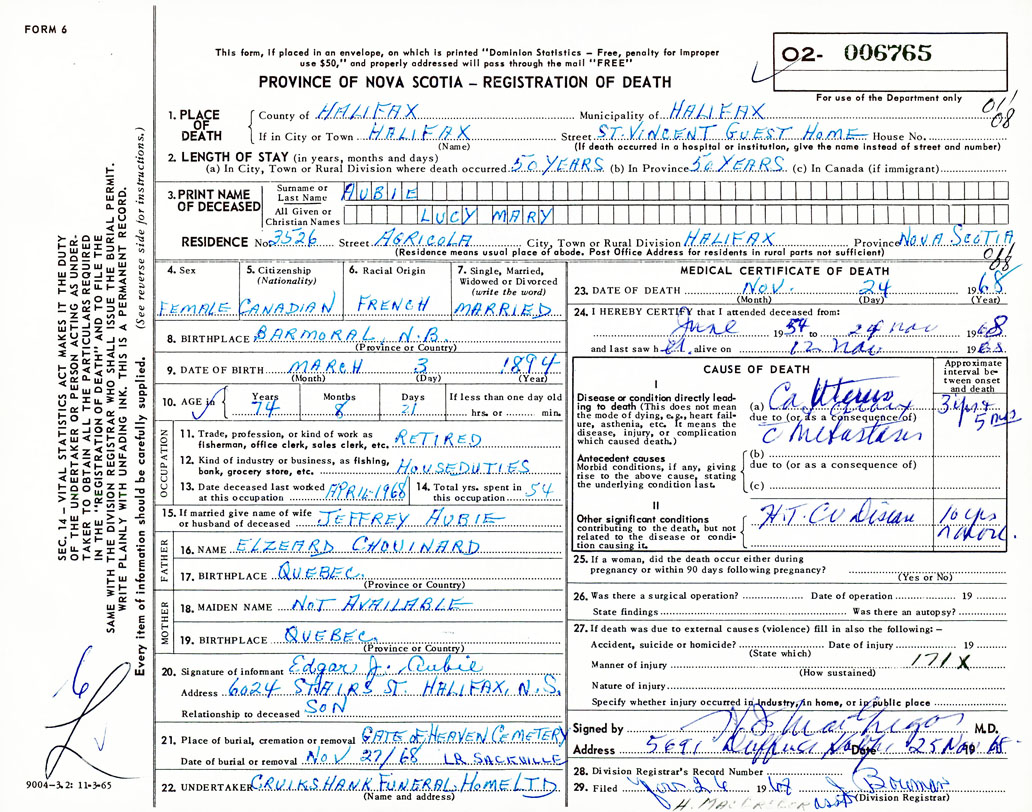 FORM 6
This form, if placed in an envelope, on which is printed "Dominion Statistics – Free, penalty for improper
use $50," and properly addressed will pass through the mail "FREE"
O2- 006765
PROVINCE OF NOVA SCOTIA – REGISTRATION OF DEATH
For use of the Department only
011
08
1. PLACE OF DEATH
County of HALIFAX Municipality of HALIFAX
If in City or Town HALIFAX Street ST. VINCENT GUEST HOME House No.
(Name) (If death occurred in a hospital or institution, give the name instead of street and number)
2. LENGTH OF STAY (in years, months and days)
(a) In City, Town or Rural Division where death occurred 50 YEARS (b) In Province 50 YEARS (c) In Canada (if immigrant)
3. PRINT NAME OF DECEASED
Surname or Last Name AUBIE
All Given or Christian Names LUCY MARY
RESIDENCE No. 3526 Street AGRICOLA City, Town or Rural Division HALIFAX Province NOVA SCOTIA
(Residence means usual place of abode. Post Office Address for residents in rural parts not sufficient)
4. Sex
FEMALE
5. Citizenship
(Nationality)
CANADIAN
6. Racial Origin
FRENCH
7. Single, Married,
Widowed or Divorced
(write the word)
MARRIED
8. BIRTHPLACE BARMORAL, N.B.
(Province or Country)
9. DATE OF BIRTH MARCH 3 1894
(Month) (Day) (Year)
10. AGE in Years Months Days If less than one day old
74 8 21 hrs. or min.
OCCUPATION
11. Trade, profession, or kind of work as
fisherman, office clerk, sales clerk, etc. RETIRED
12. Kind of industry or business, as fishing,
bank, grocery store, etc. HOUSEDUTIES
13. Date deceased last worked
at this occupation APRIL-1968
14. Total yrs. spent in
this occupation 54
15. If married give name of wife
or husband of deceased JEFFREY AUBIE
FATHER
16. NAME ELZEARD CHOUINARD
17. BIRTHPLACE QUEBEC
(Province or Country)
MOTHER
18. MAIDEN NAME NOT AVAILABLE
19. BIRTHPLACE QUEBEC
(Province or Country)
20. Signature of informant Edgar J. Aubie
Address 6024 STAIRS ST. HALIFAX, N.S.
Relationship to deceased SON
21. Place of burial, cremation or removal GATE OF HEAVEN CEMETERY
Date of burial or removal NOV 27/68 LR. SACKVILLE
22. UNDERTAKER CRUIKSHANK FUNERAL HOME LTD
(Name and address)
MEDICAL CERTIFICATE OF DEATH
011
08
23. DATE OF DEATH NOV. 24 1968
(Month) (Day) (Year)
24. I HEREBY CERTIFY that I attended deceased from:
June 1954 to 24 Nov 1968
and last saw her alive on 12 Nov 1968
CAUSE OF DEATH
Approximate
interval between onset
and death
I
Disease or condition directly leading to death (This does not mean
the mode of dying, e.g., heart failure, asthenia, etc. It means the
disease, injury, or complication
which caused death.)
(a) Ca Uterus
due to (or as a consequence of)
c Metastasis
3 yrs + 5 mos
Antecedent causes
Morbid conditions, if any, giving
rise to the above cause, stating
the underlying condition last.
(b)
due to (or as a consequence of)
(c)
II
Other significant conditions
contributing to the death, but not
related to the disease or condition causing it.
H.T. CV Disease 10 yrs
25. If a woman, did the death occur either during
pregnancy or within 90 days following pregnancy?
(Yes or No)
26. Was there a surgical operation? Date of operation 19
State findings Was there an autopsy?
27. If death was due to external causes (violence) fill in also the following: –
Accident, suicide or homicide? Date of injury 19
(State which)
Manner of injury 171X
(How sustained)
Nature of injury
Specify whether injury occurred in industry, in home, or in public place
Signed by M.D.
Address 5691 Date 25 Nov 1968
28. Division Registrar's Record Number
29. Filed Nov 26 1968 J. Bowman
(Division Registrar)
SEC. 14 – VITAL STATISTICS ACT MAKES IT THE DUTY
OF THE UNDERTAKER OR PERSON ACTING AS UNDERTAKER TO OBTAIN ALL THE PARTICULARS REQUIRED
IN THE "REGISTRATION OF DEATH" AND TO FILE THE
SAME WITH THE DIVISION REGISTRAR WHO SHALL ISSUE THE BURIAL PERMIT.
WRITE PLAINLY WITH UNFADING INK. THIS IS A PERMANENT RECORD.
Every item of information should be carefully supplied. (See reverse side for instructions.)
9004–3.2: 11-3-65